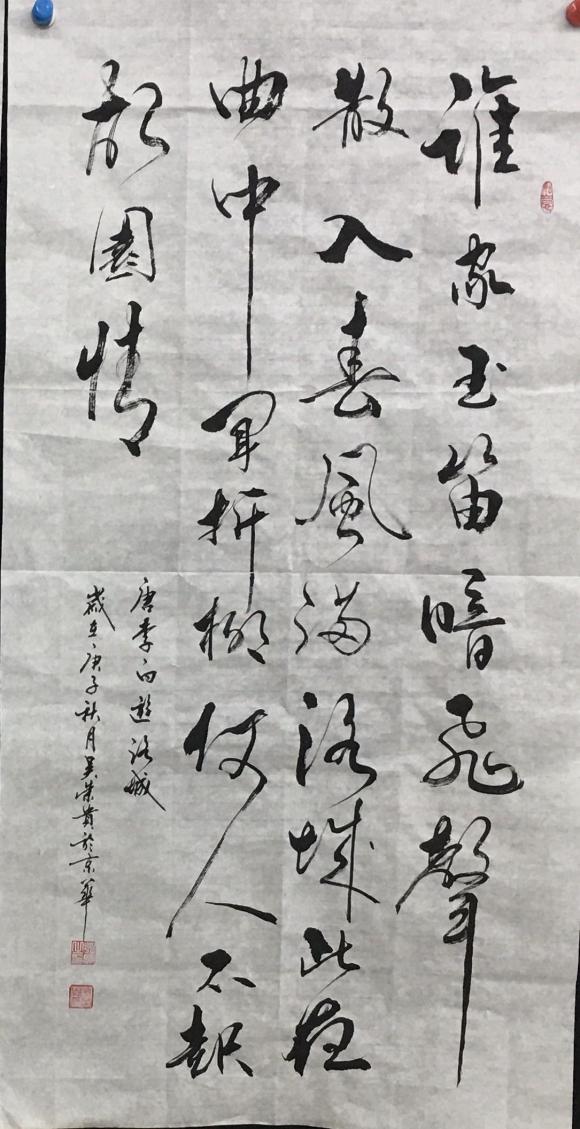 誰家玉笛暗飛聲
散入春風滿洛城此夜
曲中聞折柳何人不起
故園情
唐李白遊洛城
歲在庚子秋月吳榮貴於京華